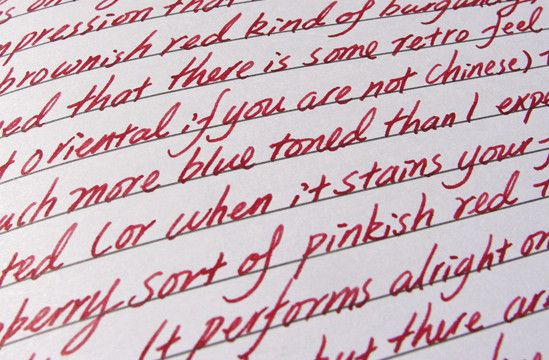 mpression that
brownish red kind of burgundy
ed that there is some retro feel
t oriental, if you are not Chinese)
uch more blue toned than I expe
ted (or when it stains your
berry sort of pinkish red
It performs alright on
but there are